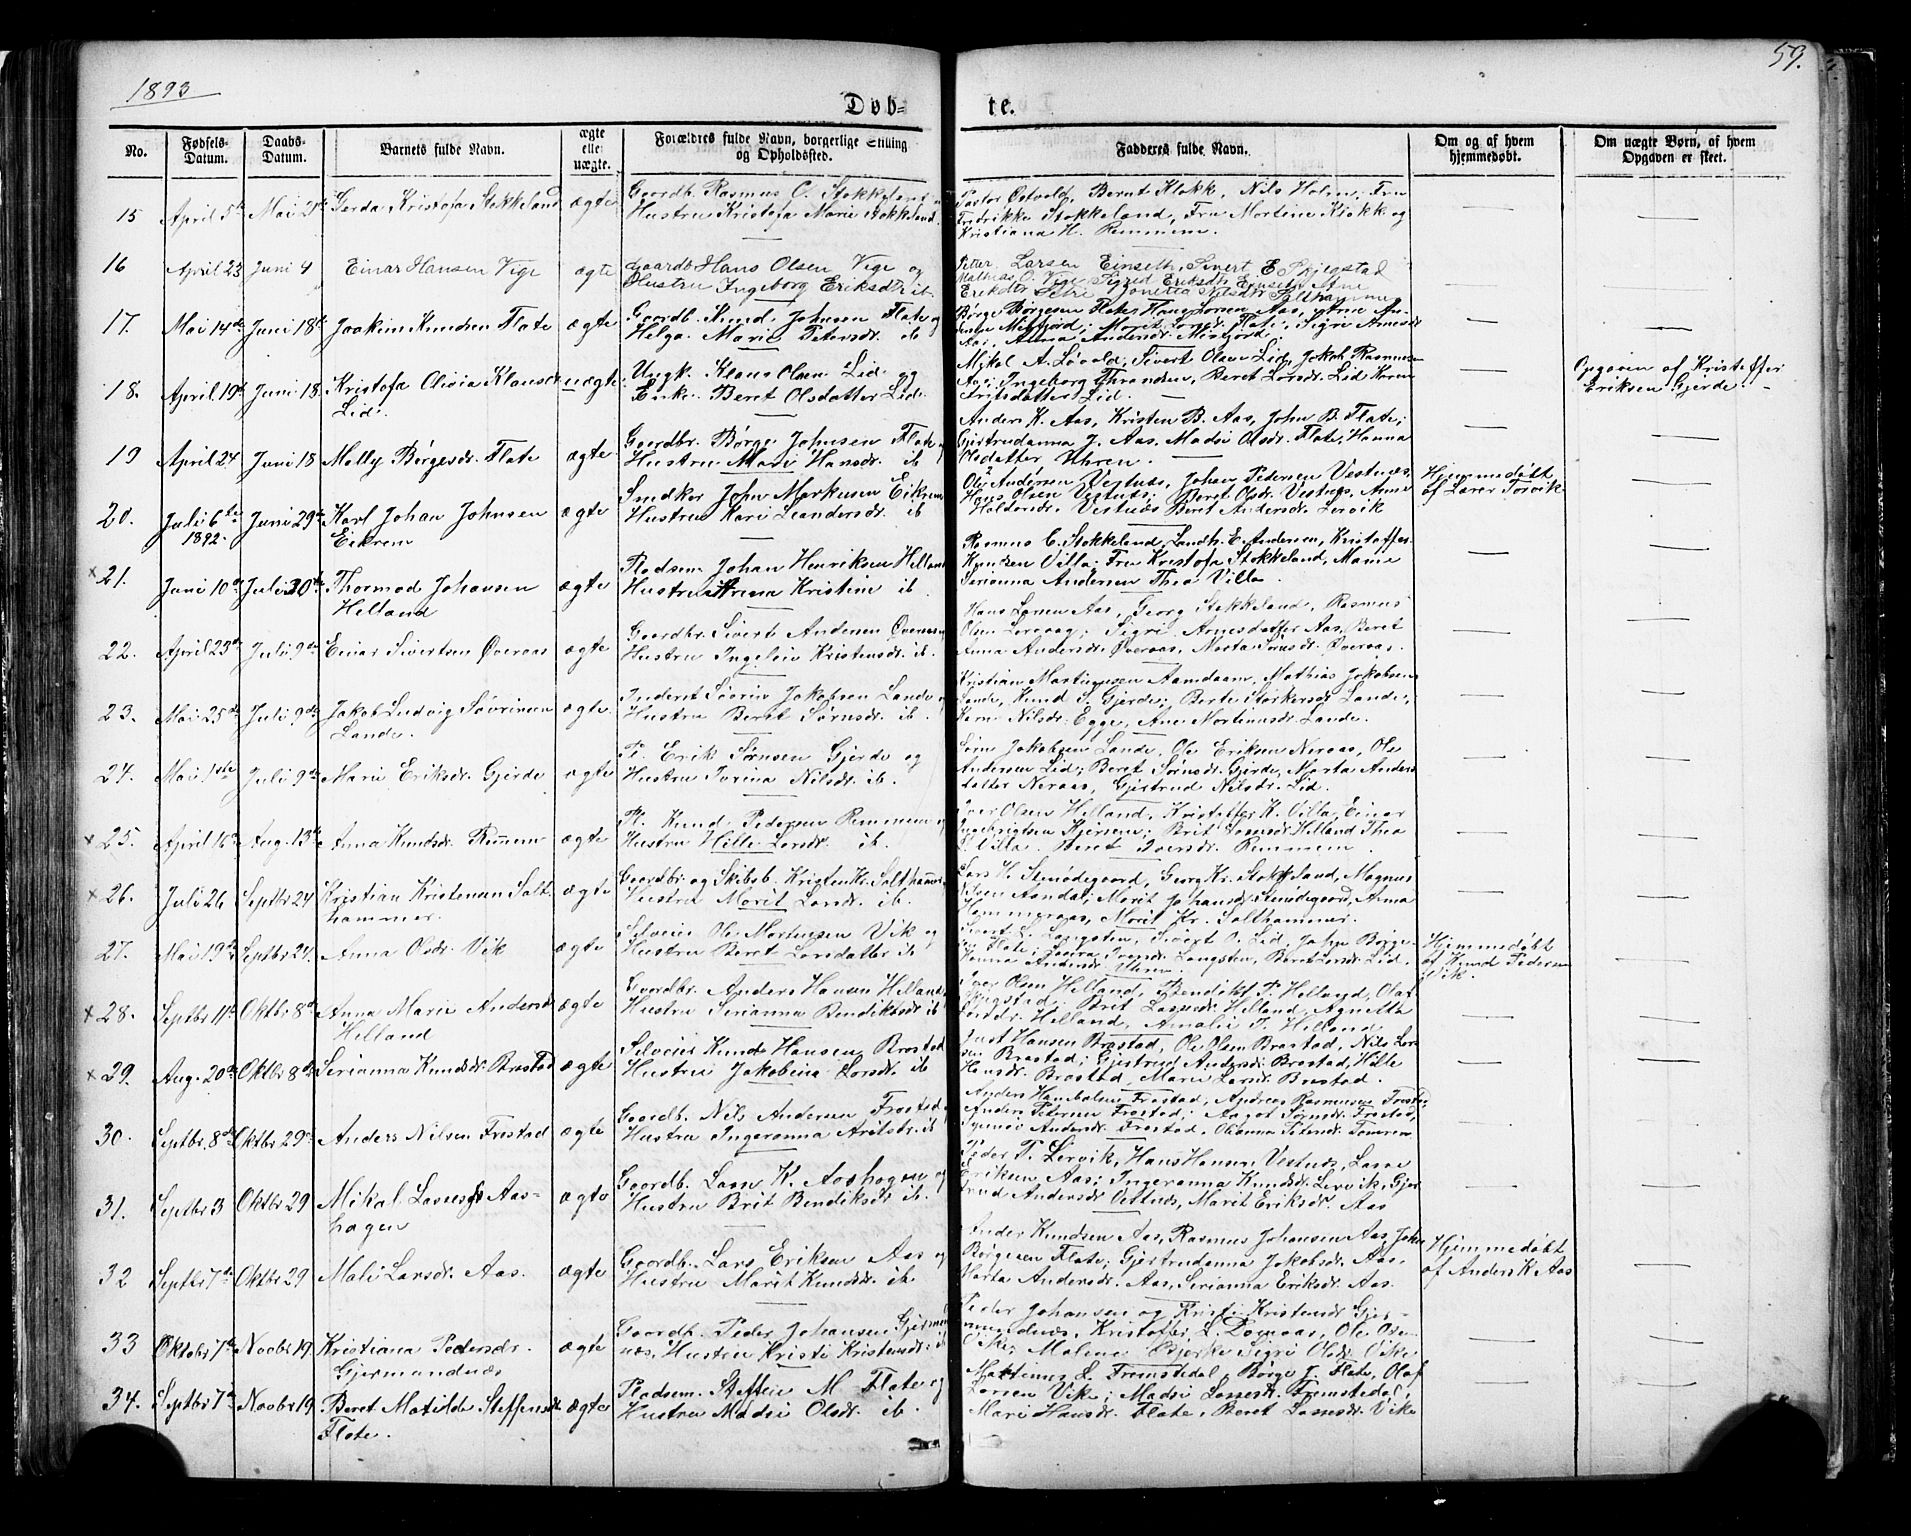 1893
59.
Døb= te.
No. Fødsels-Datum. Daabs-Datum. Barnets fulde Navn. ægte eller uægte. Forældres fulde Navn, borgerlige Stilling og Opholdssted. Fadderes fulde Navn. Om og af hvem hjemmedøbt. Om uægte Børn, af hvem Opgaven er skeet.
15 April 5te Mai 21de Gerda Kristofa Stokkeland ægte Gaardb. Rasmus O. Stokkeland
Hustru Kristofa Marie Stokkeland.
Pastor Østvold, Bernt Klokk, Nils Holm, Fru
Fredrikke Stokkeland, Fru Martine Klokk og
Kristiana H. Remmem.
16 April 23 Juni 4 Einar Hansen Vige ægte Gaardb Hans Olsen Vige og
Hustru Ingeborg Eriksdtr ib.
Petter Larsen Einseth, Sivert E Skjegstad
Mathias O. Vige, Sigrid Eriksdtr Einseth, Ane
Eriksdtr Jonetta Nilsdtr Salthammer
17. Mai 14de Juni 18de Joakim Knudsen Flate ægte Gaardb. Knud Johnsen Flate og
Helga Marie Petersdr. ib
Børge Børgesen Flate, Hans Larsen Aas,
Misfjord; Marit Larsdr. Flate, Sigri Arnesdr
Aas, Anna Andersdr. Misfjord.
18. April 19de Juni 18 Kristofa Olivia Klausdr uægte Ungk. Klaus Olsen Lid og
Lid. Enke Beret Olsdatter Lid.
Mikal A. Løvold, Sivert Olsen Lid, Jakob Rasmusen
Aas; Ingeborg Thrandsen, Beret Larsdr. Lid Karen
Fritsdatter Lid.
Opgaven af Kristoffer
Eriksen Gjerde.
19 April 24 Juni 18 Molly Børgesdr. Flate ægte Gaardbr. Børge Johnsen Flate og
Hustru Mari Hansdr. ib
Anders K. Aas, Kristen B. Aas, John B. Flate;
Gjertrudanna J. Aas. Madsi Olsdr. Flate, Hanna
Olsdatter Uhren.
20. Juli 6te Juni 29de Karl Johan Johnsen ægte Smedkar John Markusen Eikrem
1892. Eikrem Hustru Kari Leandersdr. ib
Ole Andersen Vestnæs, Johan Pedersen Vestnæs
Hans Olsen Vestnæs; Beret Olsdr. Vestnæs, Anne
Vestnæs Beret Andersdr. Lervik
Hjemmedøbt
af Lærer Torvik
x 21. Juni 10de Juli 30te Thormod Johansen ægte Pladsm. Johan Henriksen Helland
Helland Hustru Anna Kristine ib.
Rasmus C. Stokkeland, Landh. E. Andersen, Kristoffer
Knudsen Villa; Fru Kristofa Stokkeland, Mamie
Serianna Andersen Thea Villa.
22. April 23de Juli 9de Einar Sivertsen Øveraas ægte Gaardbr. Sivert Andersen Øveraas
Hustru Ingeleiv Kristensdr. ib.
Hans Larsen Aas, Georg Stokkeland, Rasmus
Olsen Leraag; Sigri Arnesdatter Aas, Beret
Anna Andersdr. Øveraas, Marta Sørnsdr. Øveraas.
23. Mai 25de Juli 9de Jakob Ludvig Søvrinsen ægte Inderst Søvrin Jakobsen Lande og
Lande. Hustru Beret Sørnsdr. ib.
Kristian Martinussen Aamdaam, Mathias Jakobsen
Lande, Knud S. Gjerde; Berte Størkersdr. Lande;
Karn Nilsdr. Egge, Ane Mortinusdr. Lande.
24. Mai 1ste Juli 9de Marie Eriksdr. Gjerde ægte Pl. Erik Sørnsen Gjerde og
Hustru Jorina Nilsdr. ib.
Sørn Jakobsen Lande, Ole Eriksen Neraas, Ole
Andersen Lid; Beret Sørnsdr. Gjerde, Marta Anders
datter Neraas, Gjertrud Nilsdr. Lid.
x 25. April 16de Aug. 13de Anna Knudsdr. Remmem ægte Pl. Knud Pedersen Remmem og
Hustru Hille Larsdr. ib.
Iver Olsen Helland, Kristoffer K. Villa, Einar
Ingebrigtsen Kjersem; Brit Larsdr. Helland Thea
Villa, Beret Iversdr. Remmem.
x 26. Juli 26 Septbr 24 Kristian Kristensen Salt- ægte Gaardbr. og Skibsb. Kristen Kr. Salthammer
hammer. Hustru Marit Larsdr. ib.
Lars H. Stenødegaard, Georg Kr. Stokkeland, Magnus
Nilsen Aandal; Marit Johansdr Stenødegaard, Anna
Hammeraas, Marit Kr. Salthammer.
27. Mai 19de Septbr 24. Anna Olsdr. Vik ægte Selveier Ole Mortensen Vik og
Hustru Beret Larsdatter ib
Sivert L. Langsten, Sivert O. Lid, John Børge-
sen Flate; Langsten, Beret Larsdr. Lid.
Hanna Andersdr. Uhren.
Hjemmedøbt
af Knud Pedersen
Vik.
x 28. Septbr 11te Oktbr 8de Anna Marie Andersdr ægte Gaardbr. Anders Hansen Helland,
Helland Hustru Serianna Bendiksdr. ib
Iver Olsen Helland, Bendikt P. Helland, Olaf
Skjegstad, Brit Larsdr. Helland, Agnetta
Helland, Amalie P. Helland
x 29. Aug. 20de Oktbr 8de Serianna Knudsdr. Brastad ægte Selveier Knud Hansen Brastad
Hustru Jakobina Larsdr. ib
Just Hansen Brastad, Ole Olsen Brastad, Nils Lar-
sen Brastad; Gjertrud Andersdr. Brastad, Hille
Hansdr. Brastad, Marie Larsdr. Brastad.
30. Septbr. 8de Oktbr 29de Anders Nilsen Frostad ægte Gaardb. Nils Andersen Frostad,
Hustru Ingeranna Arilsdr. ib
Anders Frostad, Andreas Rasmusen Frostad
Anders Petersen Frostad; Aagot Sørnsdr. Frostad,
Synnøv Andersdr. Frostad, Olianna Petersdr. Tomren
31. Septbr 3 Oktbr 29 Mikal Larsen Aas- ægte Gaardb. Lars K. Aashagen og
hagen Hustru Brit Bendiksdr ib.
Peder P. Lervik, Hans Hansen Vestnæs, Lasse
Eriksen, Aas; Ingeranna Knudsdr. Lervik, Gjer
trud Andersdr Vestnæs, Marit Eriksdr. Aas
32 Septbr 7de Oktbr 29 Mali Larsdr. Aas. ægte Gaardb. Lars Eriksen Aas og
Hustru Marit Knudsdr. ib.
Anders Knudsen Aas, Rasmus Johansen Aas, John
Børgesen Flate; Gjertrudanna Jakobsdr. Aas,
Marta Andersdr. Aas, Serianna Eriksdr. Aas.
Hjemmedøbt
af Anders K Aas
33 Oktober 7de Novbr 19 Kristiana Pedersdr. ægte Gaardb. Peder Johansen Gjermund
Gjermundnæs næs, Hustru Kristi Kristensdr: ib
Peder Johansen og Kristi Kristensdr Gjer-
mundnæs, Kristoffer L. Dorraas, Ole Ols.
Vike; Malene Bjerke Sigri Olsdr. Vike
34. Septbr 7de Novbr 19 Beret Matilde Steffensdr ægte Pladsm. Steffen M Flate og
Flate. Hustru Madsi Olsdr. ib.
Martinus L. Fremstedal, Børge J. Flate, Olaf
Larsen Vike; Madsi Lassesdr. Fremstedal,
Mari Hansdr. Flate, Beret Larsdr. Vike